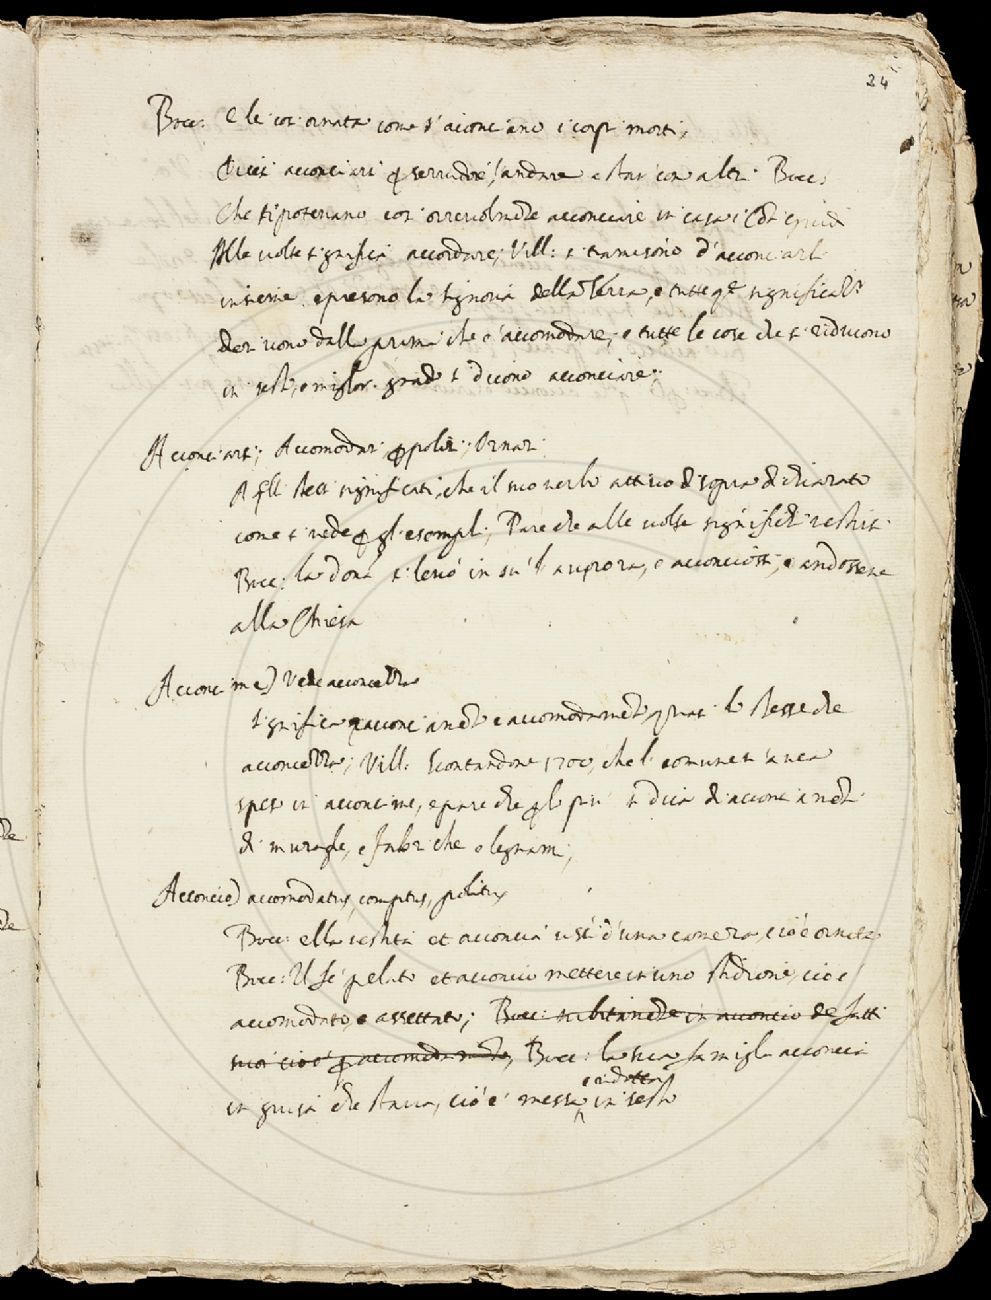 24
Bocc: E le cosi ornata come s'aconciano i corpi morti;
Dicesi acconciarsi p servidore, andare a star con altri Bocc:
Che si potevano cosi orrevolmente acconciare in casa i
Alle volte significa accordare; Vill: si tramisono d'acconciarli
insieme e presono la signoria della Terra, e tutte qte significati
derivono dalla prima che è accomodare, e tutte le cose che si riducono
in sesto, o miglior grado si dicono acconciare;
Acconciarsi; Accomodar, polir, Ornar
A qlli stessi significati, che il suo verbo attivo di sopra dichiarato
come si vede p gl'esempli; Pare che alle volte significhi vestirsi
Bocc: la dona si levò in su l'aurora, e acconciossi, e andossene
alla Chiesa
Acconcime) Vede acconcezza
significa acconciamento e accomodamento, quasi lo stesso che
acconcezza; Vill: scontandone 1700, che'l comune si havea
speso in acconcime, e pare che p lo piu si dica di acconciamento
di muragle, e fabriche o legnami;
Acconcio) accomodatus, comptus, politus
Bocc: ella vestita et acconcia uscì d'una camera, cioè ornata
Bocc: pelato et acconcio mettere in uno stidione, cioè
accomodato, e assettato; Bocc: subitamente in acconcio de fatti
suoi cioè p accomodamento, Bocc: la sua famigla acconcia
e ridotta
in guisa che stava, cioè messa in sesto